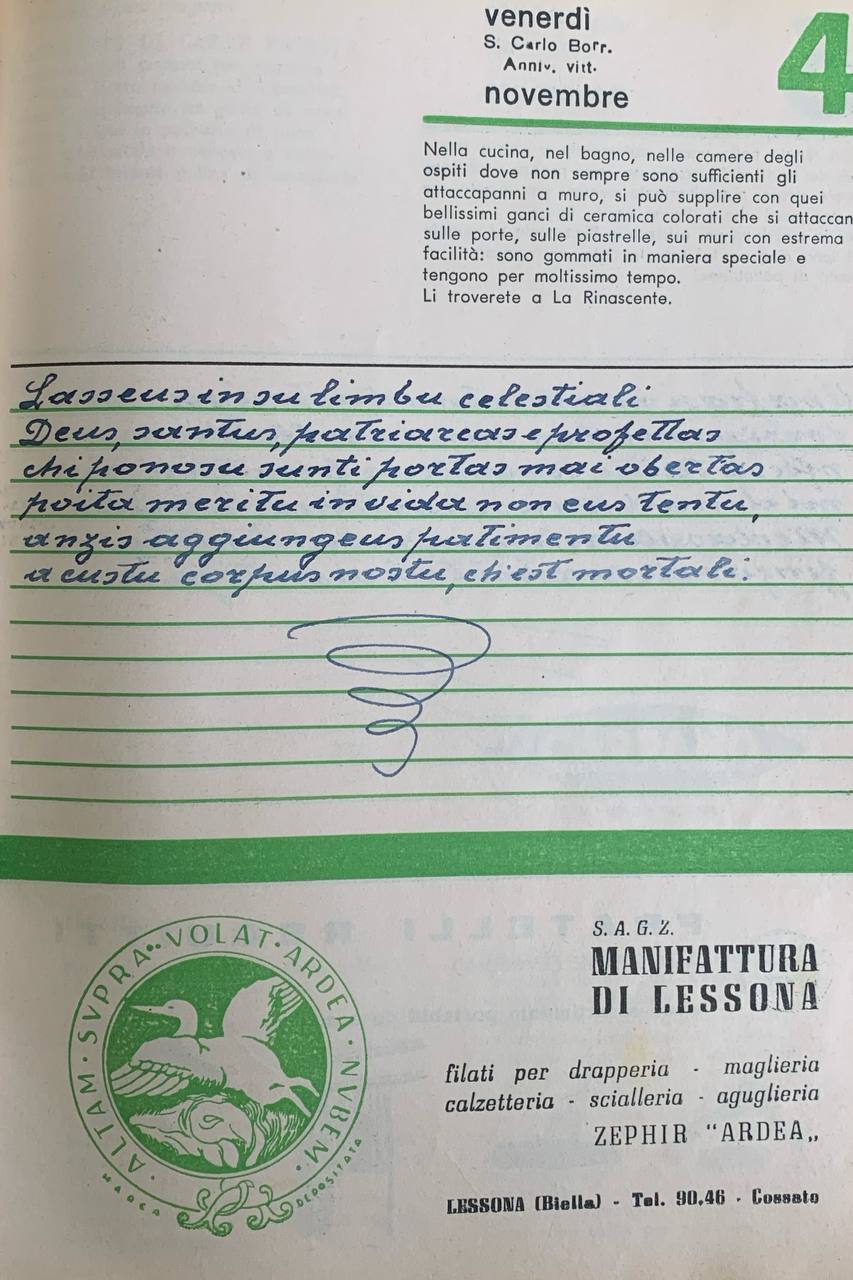 venerdì
S. Carlo Borr.
Anniv. vitt.
novembre
4
Nella cucina, nel bagno, nelle camere degli
ospiti dove non sempre sono sufficienti gli
attaccapanni a muro, si può supplire con quei
bellissimi ganci di ceramica colorati che si attaccan
sulle porte, sulle piastrelle, sui muri con estrema
facilità: sono gommati in maniera speciale e
tengono per moltissimo tempo.
Li troverete a La Rinascente.
Lasseus in su limbu celestiali
Deus, santus, patriarcas e profettas
chi ponosu sunti portas mai obertas
poita meritu in vida non eus tentu,
anzis aggiungeus patimentu
a custu corpus nostu, ch'est mortali.
ALTAM · SVPRA · VOLAT · ARDEA · NVBEM
MARCA DEPOSITATA
S. A. G. Z.
MANIFATTURA
DI LESSONA
filati per drapperia - maglieria
calzetteria - scialleria - aguglieria
ZEPHIR "ARDEA„
LESSONA (Biella) - Tel. 90.46 - Cossato